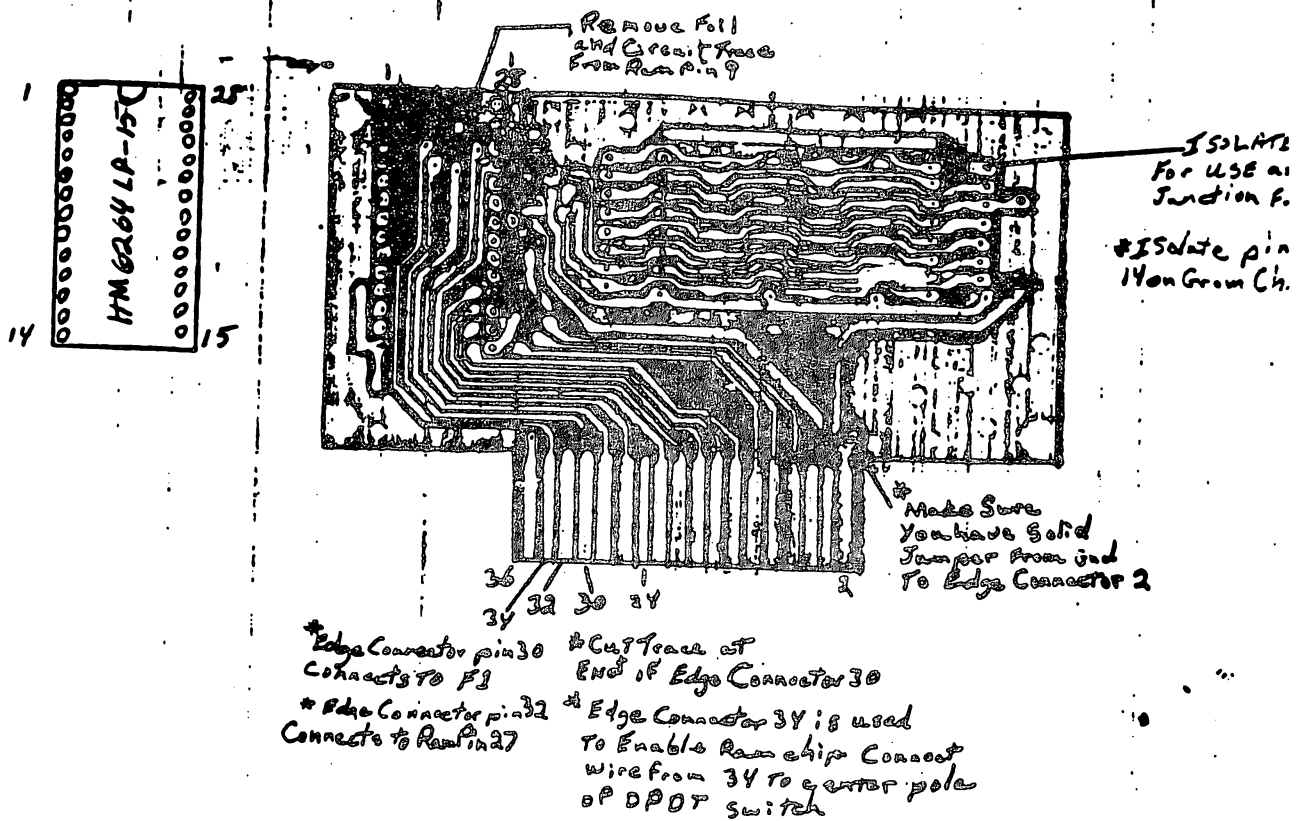 Remove Foil
and Circuit Trace
From Ram Pin 9
28
1
28
HM6264LP-15
14
15
ISOLATE
For USE as
Junction F.
*ISolate pin
14 on Grom Ch.
*
Make Sure
You have Solid
Jumper From
To Edge Connector 2
36
34
32
30
24
2
*Edge Connector pin 30
Connects To F1
*Edge Connector pin 32
Connects to Ram Pin 27
*Cut Trace at
End of Edge Connector 30
*Edge Connector 34 is used
To Enable Ram chip Connect
wire From 34 To center pole
OF DPDT Switch